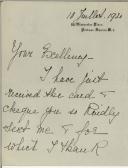 10 Juillet. 1920
Your Excellency
I have just
received the card &
cheque you so kindly
sent me & for
which I thank